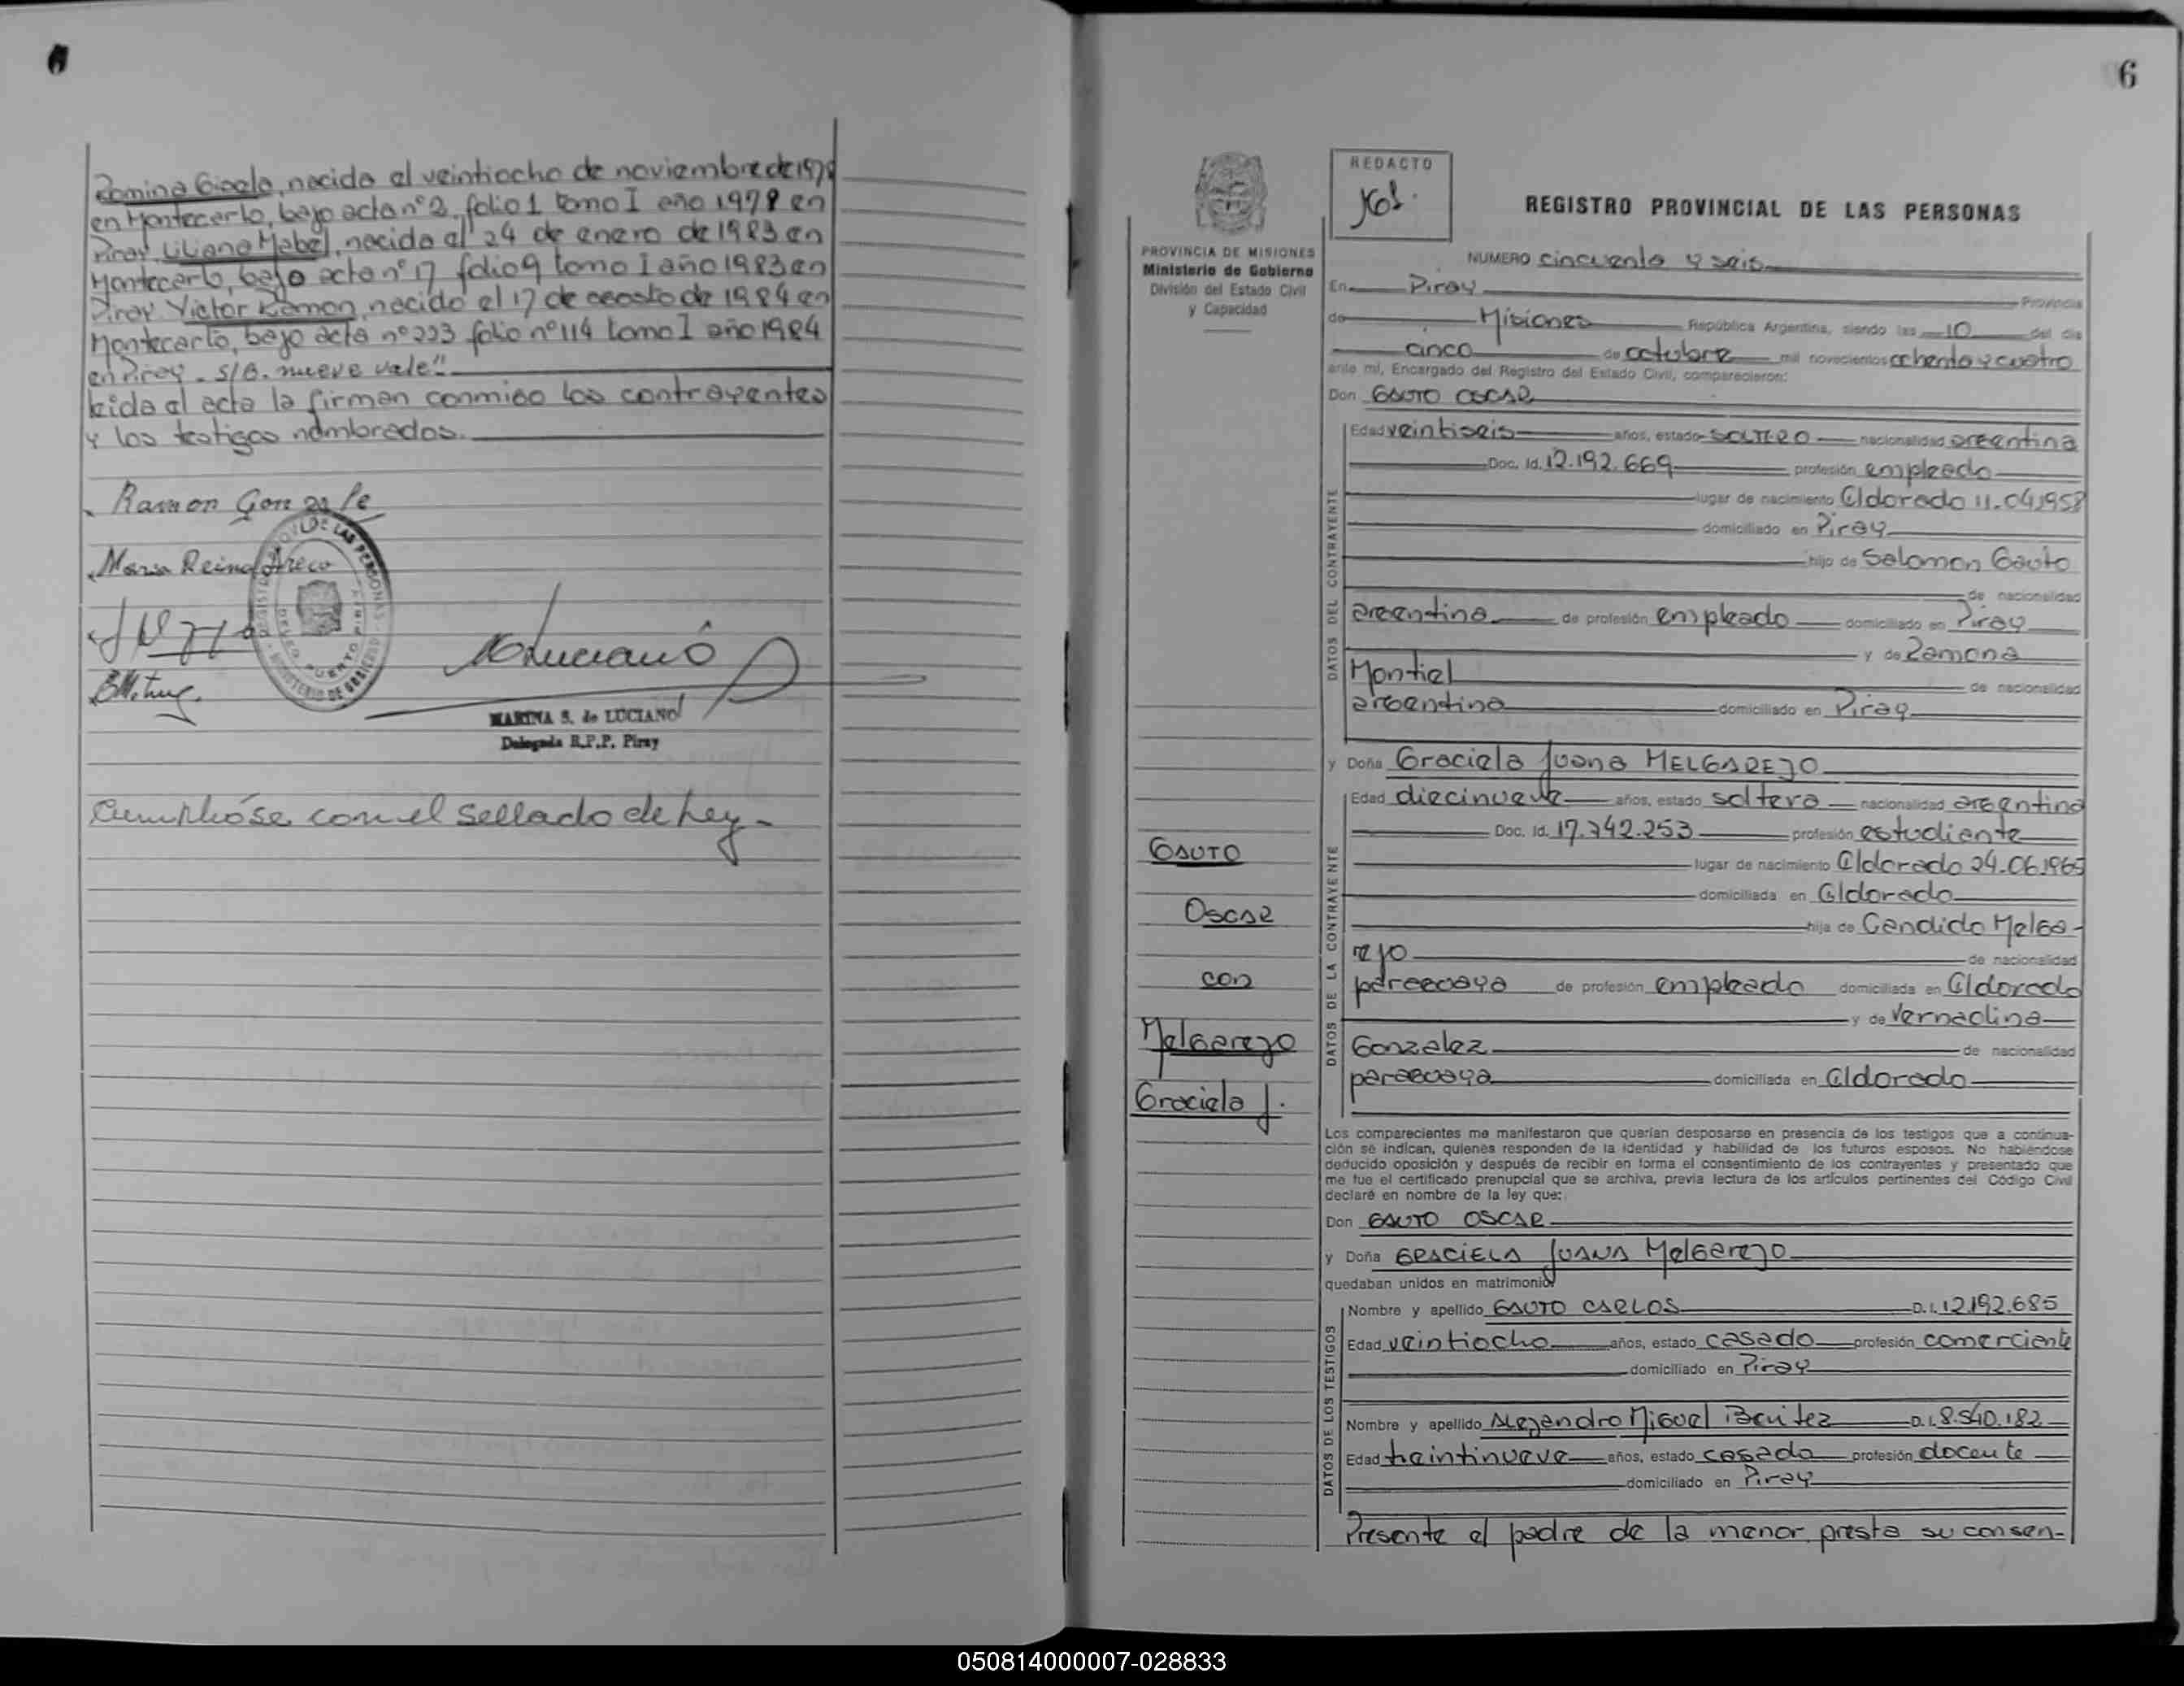 Romina Gisela, nacida el veintiocho de noviembre de 197
en Montecarlo, bajo acta nº 2, folio 1 tomo I año 1979 en
Piray, Liliana Mabel, nacida el 24 de enero de 1983 en
Montecarlo, bajo acta nº 17 folio 9 tomo I año 1983 en
Piray Victor Ramon, nacido el 17 de agosto de 1984 en
Montecarlo, bajo acta nº 223 folio nº 114 tomo I año 1984
en Piray. S/B. nueve vale"
Leida el acta la firman conmigo los contrayentes
y los testigos nombrados.
Ramon Gonzale
Maria Reina Areco
MLuciano
MARINA S. de LUCIANO
Delegada R.P.P. Piray
Cumplióse con el sellado de Ley.-
6
PROVINCIA DE MISIONES
Ministerio de Gobierno
División del Estado Civil
y Capacidad
REDACTO
REGISTRO PROVINCIAL DE LAS PERSONAS
NUMERO cincuenta y seis
En Piray Provincia
de Misiones República Argentina, siendo las 10 del día
cinco de octubre mil novecientos ochenta y cuatro
ante mí, Encargado del Registro del Estado Civil, comparecieron:
Don GAUTO OSCAR
DATOS DEL CONTRAYENTE
Edad veintiseis años, estado SOLTERO nacionalidad argentina
Doc. Id. 12.192.669 profesión empleado
lugar de nacimiento Eldorado 11.04.1958
domiciliado en Piray
hijo de Salomon Gauto
de nacionalidad
argentina de profesión empleado domiciliado en Piray
y de Ramona
Montiel de nacionalidad
argentina domiciliado en Piray
y Doña Graciela Juana MELGAREJO
GAUTO
OSCAR
con
Melgarejo
Graciela J.
DATOS DE LA CONTRAYENTE
Edad diecinueve años, estado soltera nacionalidad argentina
Doc. Id. 17.742.253 profesión estudiante
lugar de nacimiento Eldorado 24.06.1965
domiciliada en Eldorado
hija de Candido Melga-
rejo de nacionalidad
paraguaya de profesión empleado domiciliada en Eldorado
y de Vernadina
Gonzalez de nacionalidad
paraguaya domiciliada en Eldorado
Los comparecientes me manifestaron que querían desposarse en presencia de los testigos que a continua-
ción se indican, quienes responden de la identidad y habilidad de los futuros esposos. No habiéndose
deducido oposición y después de recibir en forma el consentimiento de los contrayentes y presentado que
me fue el certificado prenupcial que se archiva, previa lectura de los artículos pertinentes del Código Civil
declaré en nombre de la ley que:
Don GAUTO OSCAR
y Doña GRACIELA JUANA Melgarejo
quedaban unidos en matrimonio
DATOS DE LOS TESTIGOS
Nombre y apellido GAUTO CARLOS D.I. 12.192.685
Edad veintiocho años, estado casado profesión comerciante
domiciliado en Piray
Nombre y apellido Alejandro Miguel Benitez D.I. 8.540.182
Edad treintinueve años, estado casado profesión docente
domiciliado en Piray
Presente el padre de la menor, presta su consen-
050814000007-028833